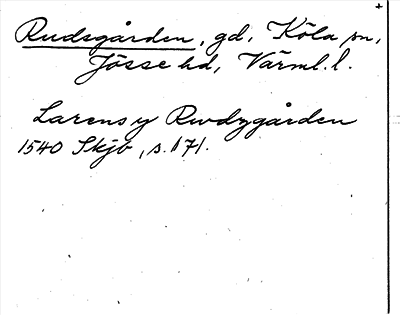 Rudsgården, gd, Köla sn,
Jösse hd, Värml. l.
Larens y Rwdzgården
1540 Skjb, s. 171.